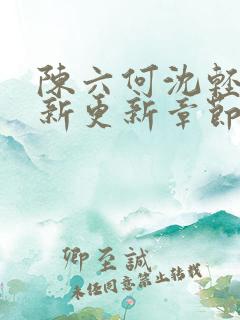 陳六何沈輕
新更新章節
卿至誠
未经同意禁止转载